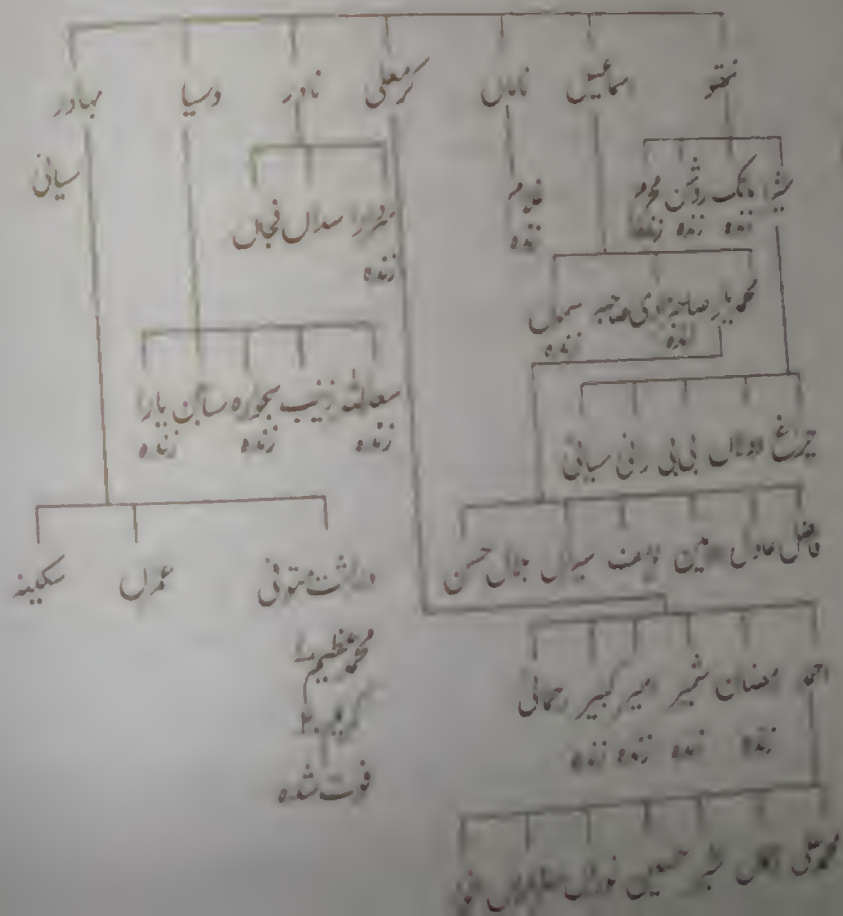 نختو اسماعیل ناماں کرمعلی نادر وسیا بہادر
سیانی
شیرا مانک روشن محرم
زندہ زندہ زندہ
غلام
زندہ
سردارا سداں فجاں
زندہ
محمد یار صاحبزادی صاحبہ سماں
زندہ زندہ
سعداللہ زینب ہجورہ سابن یارا
زندہ زندہ زندہ
چراغ دولاں بی بی رنی سیانی
فاضل عادل امین یوسف سیراں بلال حسن
وراثت متوفی عمراں سکینہ
محمد عظیم
فوت شدہ
احمد رمضان شمیر امیر کبیر رحمانی
زندہ زندہ زندہ زندہ
محمد علی شبیر حسین نوراں